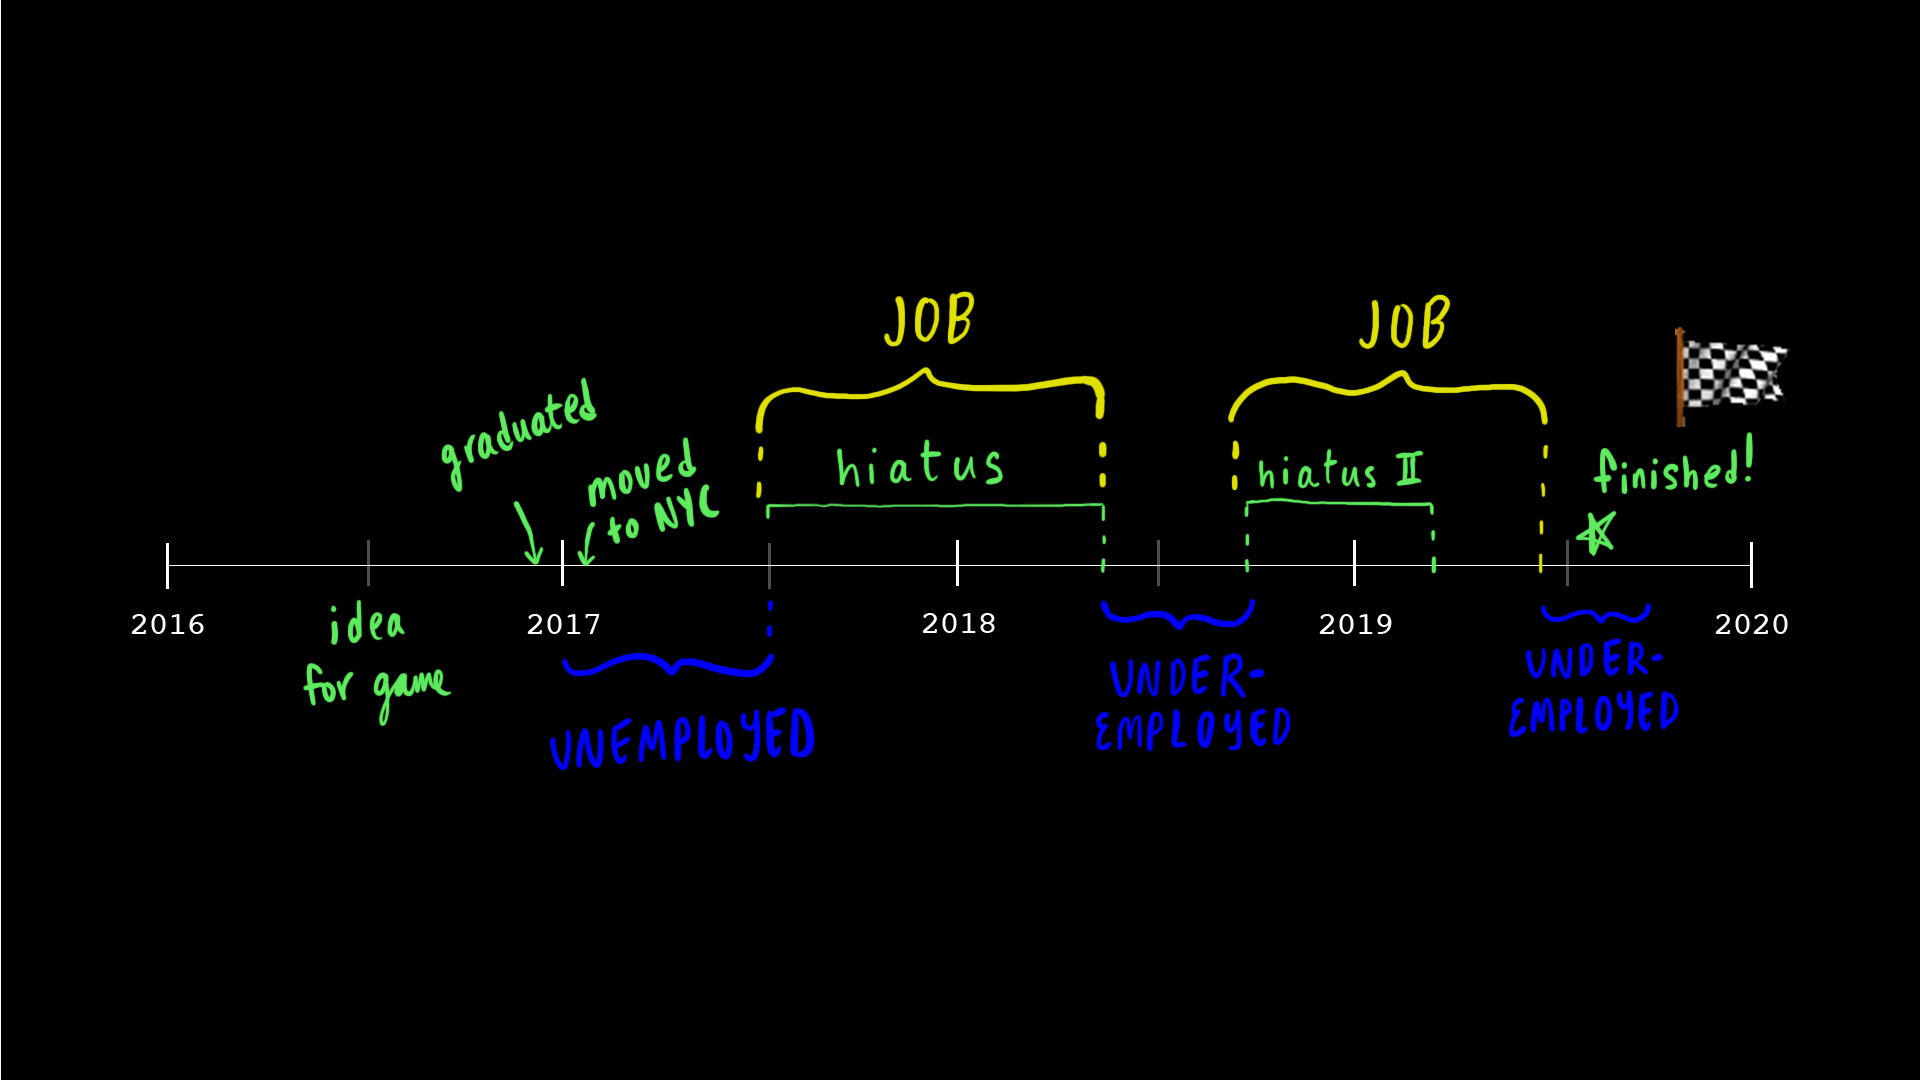 JOB
JOB
graduated
moved
to NYC
hiatus
hiatus II
finished!
2016
2017
2018
2019
2020
idea
for game
UNEMPLOYED
UNDER-
EMPLOYED
UNDER-
EMPLOYED